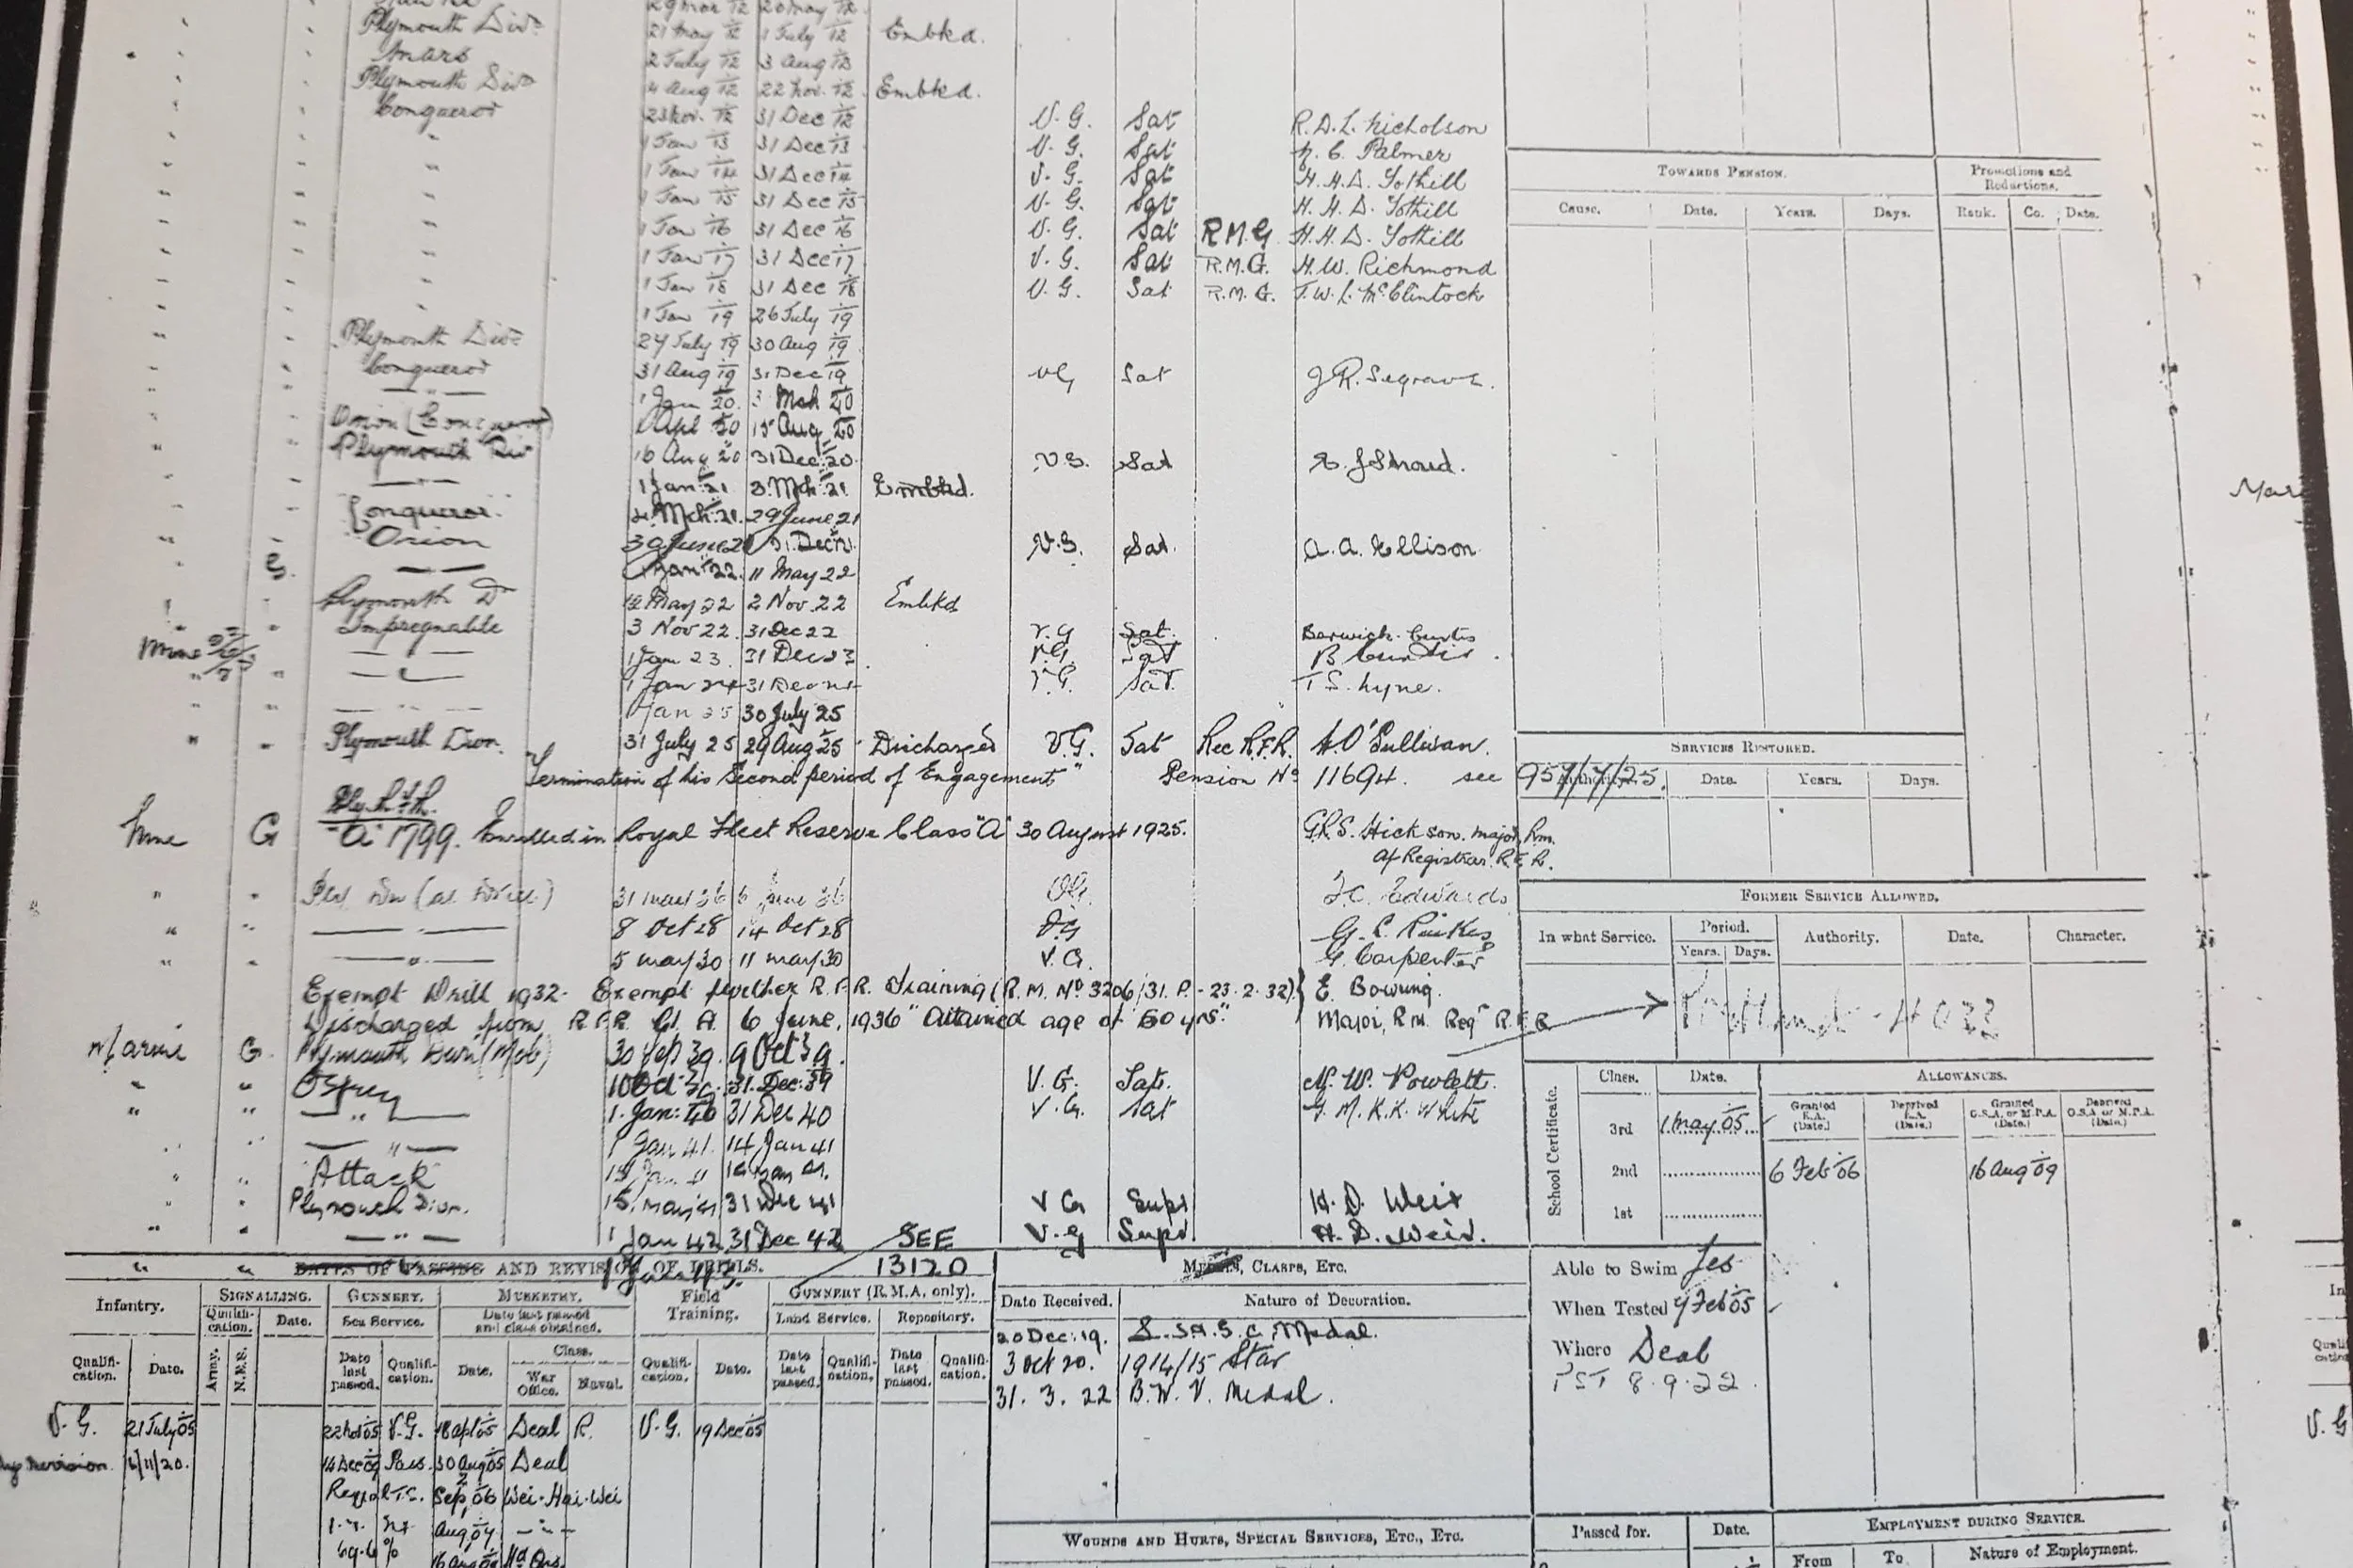 29 Mar 12 20 May 12
Plymouth Divn 21 May 12 1 July 12 Embkd.
Mars 2 July 12 3 Aug 12
Plymouth Divn 4 Aug 12 22 Nov. 12 Embkd.
Conqueror 23 Nov. 12 31 Dec 12 V.G. Sat R.D.L. Nicholson
" 1 Jan 13 31 Dec 13 V.G. Sat N.C. Palmer
" 1 Jan 14 31 Dec 14 V.G. Sat H.H.D. Tothill
" 1 Jan 15 31 Dec 15 V.G. Sat H.H.D. Tothill
" 1 Jan 16 31 Dec 16 V.G. Sat R.M.G. H.H.D. Tothill
" 1 Jan 17 31 Dec 17 V.G. Sat R.M.G. H.W. Richmond
" 1 Jan 18 31 Dec 18 V.G. Sat R.M.G. J.W.L. McClintock
" 1 Jan 19 26 July 19
Plymouth Divn 27 July 19 30 Aug 19
Conqueror 31 Aug 19 31 Dec 19 VG Sat J.R. Segrave.
— " — 1 Jan 20. Mch 20
Orion (Conqueror) 1 Apl 20 15 Aug 20
Plymouth Div 16 Aug 20 31 Dec. 20. V.G. Sat E.J. Stroud.
— " — 1 Jan. 21 3. Mch. 21 Embkd.
Conqueror. 4. Mch. 21. 29 June 21
Orion 30 June 21 31. Dec 21. V.G. Sat. A.A. Ellison
G. — " — 1 Jan. 22. 11 May 22
Plymouth Dn 12 May 22 2 Nov. 22 Embkd
Impregnable 3 Nov 22. 31 Dec 22 V.G Sat. Berwick-Curtis
Mne — " — 1 Jan 23. 31 Dec 23 V.G. Sat B Curtis.
— " — 1 Jan 24 31 Dec 24 V.G. Sat. T.S. Lyne.
— " — 1 Jan 25 30 July 25
Plymouth Divn. 31 July 25 29 Aug 25 Discharged V.G. Sat Rec R.F.R. H.O'Sullivan.
"Termination of his Second period of Engagement" Pension No 11694. see 957/7/25.
Ply. R.F.R.
Mne G "A" 1799. Enrolled in Royal Fleet Reserve Class "A" 30 August 1925. G.R.S. Hickson. Major, Rm.
a/ Registrar. R.F.R.
" " Ply Dn (at Drill) 31 May 26 6 June 26 VG. F.C. Edwards
" " — " — 8 Oct 28 14 Oct 28 VG
" " — " — 5 May 30 11 May 30 V.G. G. Carpenter
Exempt Drill 1932- Exempt further R.F.R. Training (R.M. No 3206/31. P. - 23.2.32) } E. Bowring.
Discharged from R.F.R. Cl. A. 6 June, 1936 "Attained age of 50 yrs". Major, R.M. Regr R.F.R.
Marine G. Plymouth Divn (Mob) 30 Sep 39. 9 Oct 39.
" " Osprey 10 Oct 39. 31. Dec. 39 V.G. Sat. N.W. Powlett.
" " — " — 1. Jan. 40 31 Dec 40 V.G. Sat F.M.K.K. White
" " — " — 1 Jan 41. 14 Jan 41
" " Attack 15 Jan 41
" " Plymouth Divn. 31 Dec 41 V G Supr H. D. Weir
" " — " — 1 Jan 42 31 Dec 42 SEE V.G Supr H. D. Weir.
" " 13120
TOWARDS PENSION.
Cause. Date. Years. Days.
Promotions and Reductions.
Rank. Co. Date.
SERVICES RESTORED.
Authority. Date. Years. Days.
FORMER SERVICE ALLOWED.
In what Service. Period. Authority. Date. Character.
Years. Days.
School Certificate.
Class. Date. ALLOWANCES.
Granted E.A. (Date.) Deprived E.A. (Date.) Granted G.S.A. or M.P.A. (Date.) Deprived G.S.A. or M.P.A. (Date.)
3rd 1 May 05
2nd 6 Feb 06 16 Aug 09
1st
DATES OF PASSING AND REVISION OF DRILLS.
Infantry. SIGNALLING. GUNNERY. MUSKETRY. Field Training. GUNNERY (R.M.A. only).
Qualification. Date. Sea Service. Date last passed and class obtained. Land Service. Repository.
Qualification. Date. Army. N.E.S. Date last passed. Qualification. Date. Class. War Office. Naval. Qualification. Date. Date last passed. Qualification. Date last passed. Qualification.
V.G. 21 July 05 22 Nov 05 V.G. 18 Apl 05 Deal R. V.G. 19 Dec 05
Revision 6/11/20. 14 Dec 09 Pass. 30 Aug 05 Deal
Sep. 06 Wei-Hai-Wei
Aug 07 — " —
MEDALS, CLASPS, ETC.
Date Received. Nature of Decoration.
20 Dec. 19. L.S. & G.C. Medal.
3 Oct 20. 1914/15 Star
31. 3. 22 B.W. V. Medal.
WOUNDS AND HURTS, SPECIAL SERVICES, ETC., ETC.
Able to Swim Yes
When Tested 7 Feb 05
Where Deal
PST 8.9.22
Passed for. Date. EMPLOYMENT DURING SERVICE.
From To Nature of Employment.
V.G